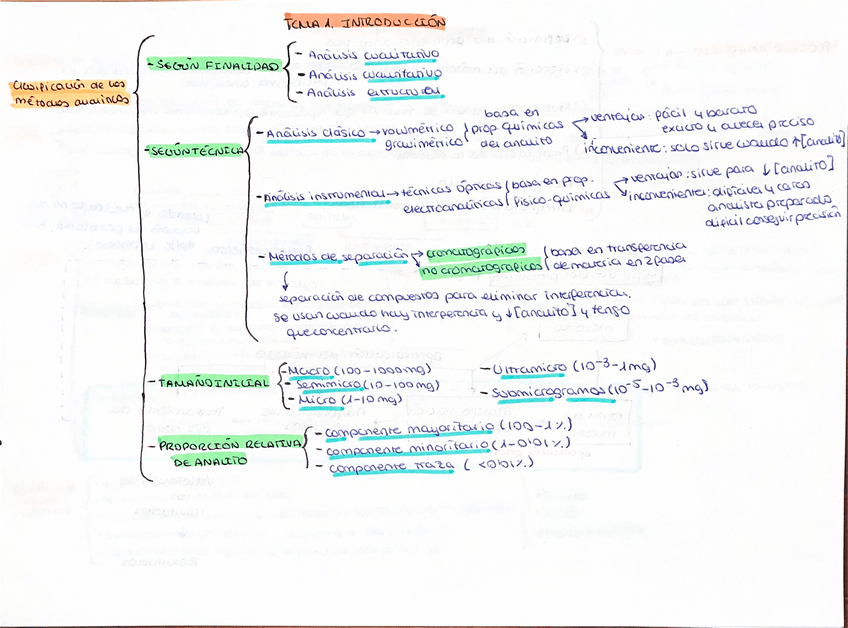 TEMA 1. INTRODUCCIÓN
Clasificación de los
métodos analíticos
- SEGÚN FINALIDAD
- Análisis cualitativo
- Análisis cuantitativo
- Análisis estructural
- SEGÚN TÉCNICA
- Análisis clásico → volumétrico
gravimétrico
basa en
prop químicas
del analito
→ ventajas: fácil y barato
exacto y a veces preciso
inconveniente: solo sirve cuando ↑[analito]
- Análisis instrumental → técnicas ópticas
electroanalíticas
basa en prop.
físico-químicas
→ ventajas: sirve para ↓[analito]
inconvenientes: difíciles y caros
analista preparado
difícil conseguir precisión
- Métodos de separación → cromatográficos
no cromatográficos
basa en transferencia
de materia en 2 fases
separación de compuestos para eliminar interferencias.
Se usan cuando hay interferencia y ↓[analito] y tengo
que concentrarlo.
- TAMAÑO INICIAL
- Macro (100-1000mg)
- Semimicro (10-100mg)
- Micro (1-10mg)
- Ultramicro (10⁻³-1mg)
- Submicrogramos (10⁻⁵-10⁻³mg)
- PROPORCIÓN RELATIVA
DE ANALITO
- componente mayoritario (100-1%)
- componente minoritario (1-0'01%)
- componente traza (<0'01%)